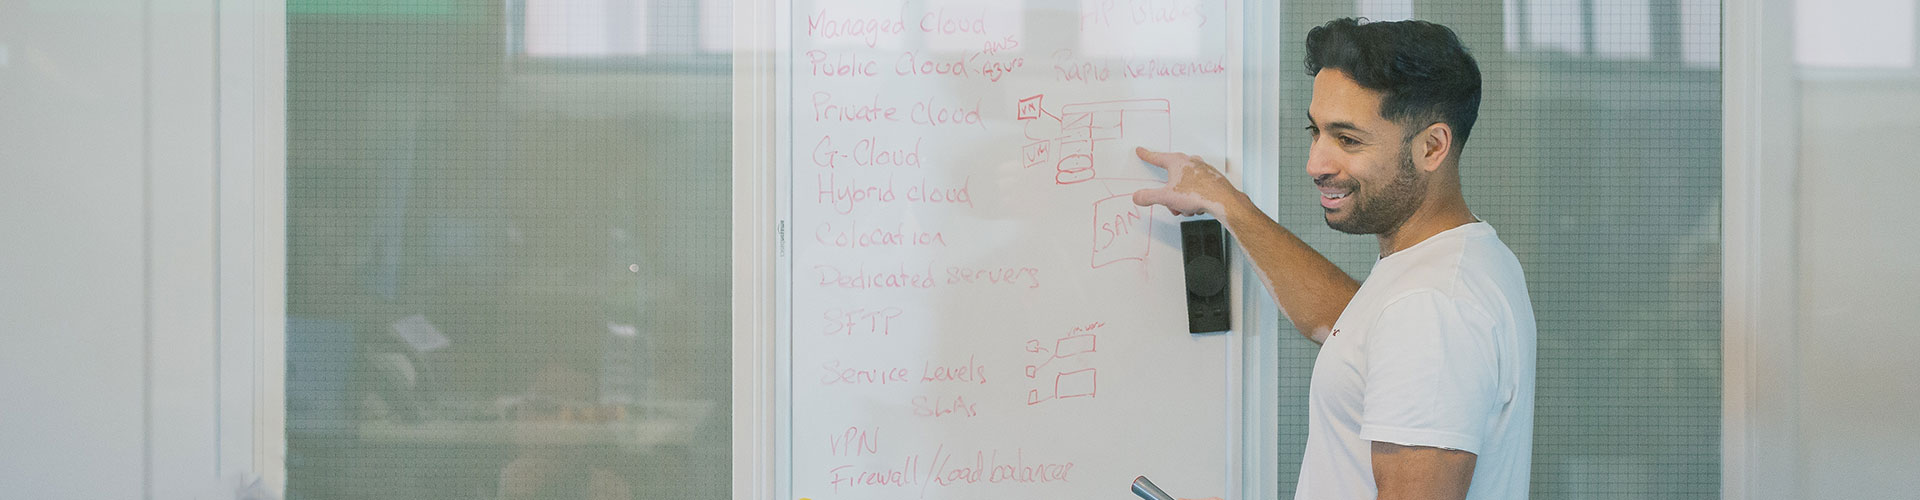 Managed Cloud
HP Blades
Public Cloud
AWS
Azure
Rapid Replacement
Private Cloud
VM
VM
G-Cloud
Hybrid cloud
SAN
Colocation
Dedicated servers
SFTP
Service Levels
SLAs
VPN
Firewall/Loadbalancer